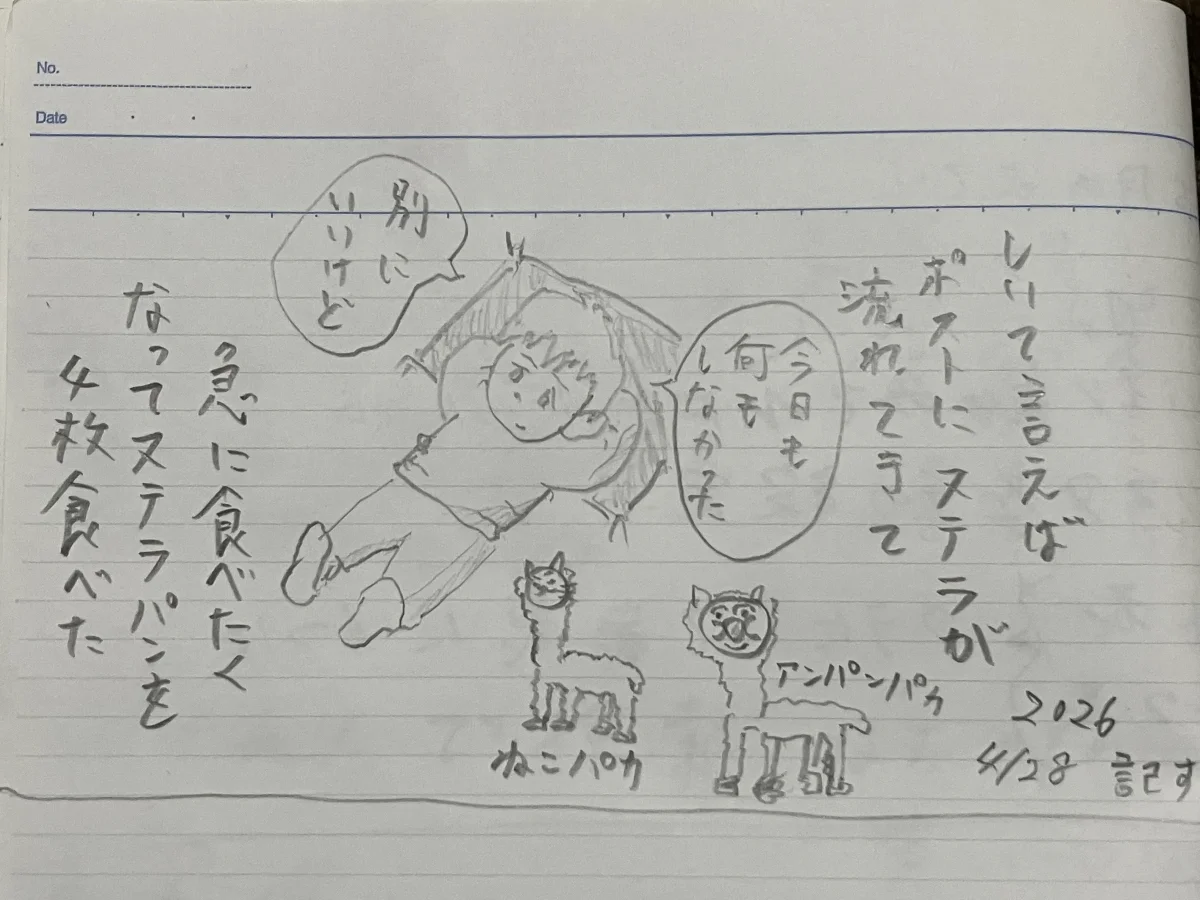 No.
Date
しいて言えば
ポストにステラが
流れてきて
今日も
何も
しなかった
別に
いいけど
急に食べたく
なってステラパンを
4枚食べた
ねこパカ
アンパンパカ
2026
4/28 記す